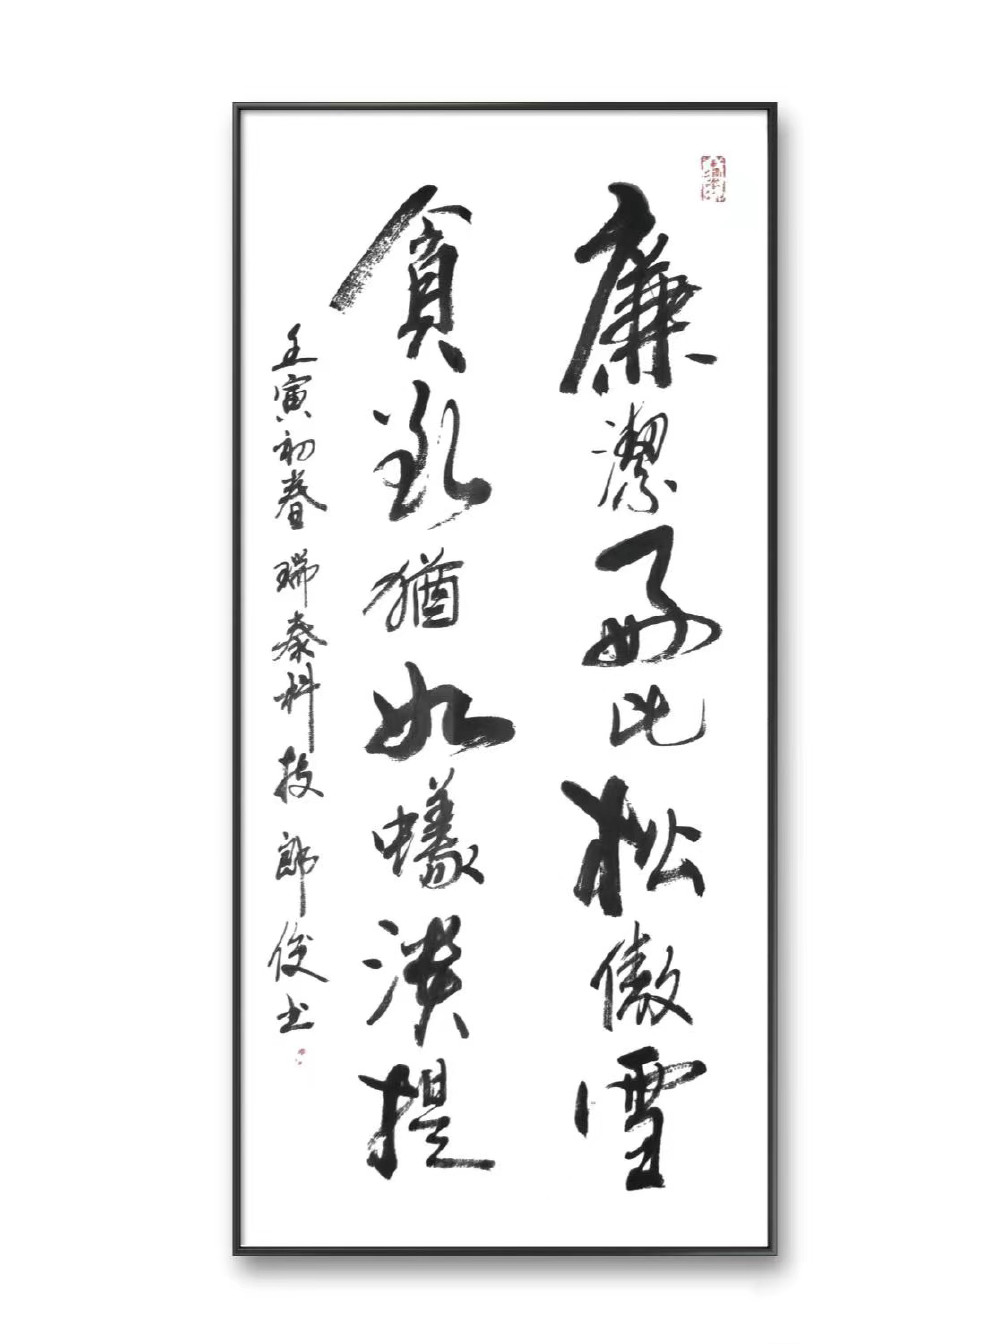 廉潔好比松傲雪
貪欲猶如蟻潰提
壬寅初春 瑞泰科技 郎俊书